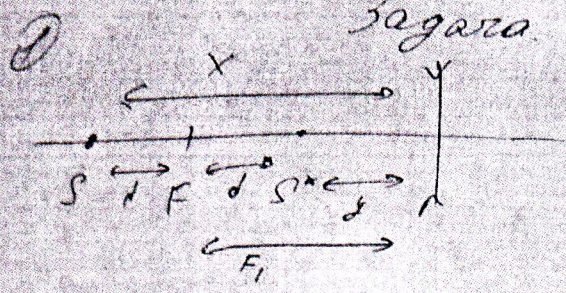 ① Задача.
X
S d F d S* y
F₁